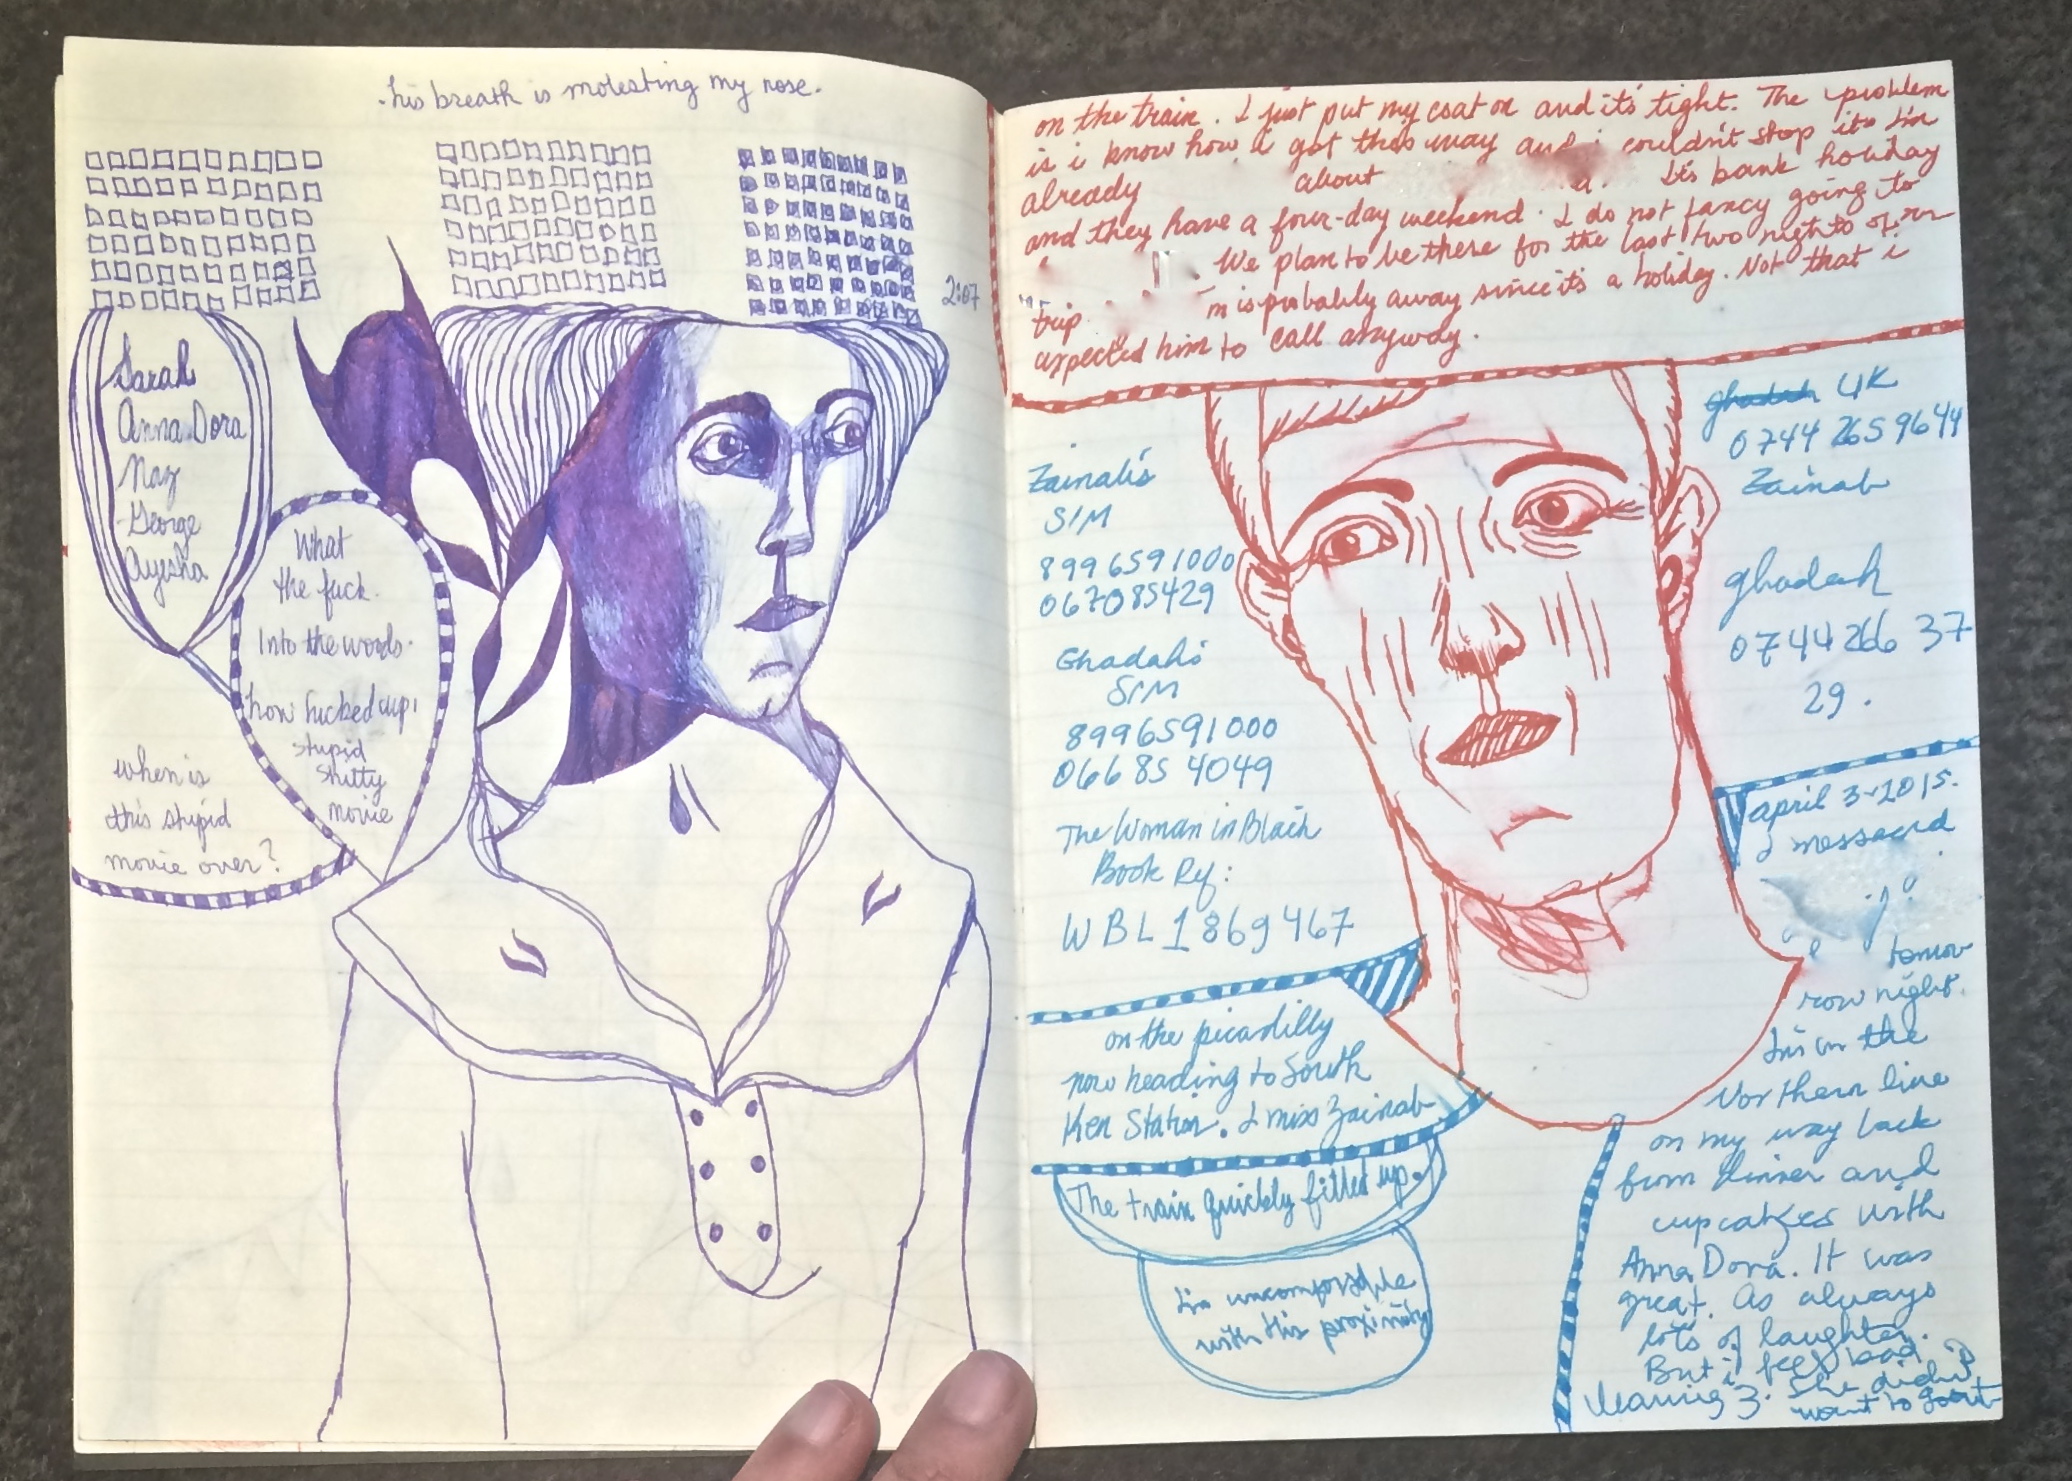 his breath is molesting my nose.
2:07
Sarah
Anna Dora
Naz
George
Ayesha
What
the fuck.
Into the woods.
how fucked up!
stupid
shitty
movie
when is
this stupid
movie over?
on the train. I just put my coat on and it's tight. The problem
is i know how i got this way and i couldn't stop it. I'm
already about It's bank holiday
and they have a four-day weekend. I do not fancy going to
We plan to be there for the last two nights of our
trip is probably away since it's a holiday. Not that i
expected him to call anyway.
Zainab's
SIM
8996591000
067085429
Ghadah's
SIM
8996591000
066854049
The Woman in Black
Book Ref:
WBL1869467
on the picadilly
now heading to South
Ken Station. I miss Zainab
The train quickly filled up.
I'm uncomfortable
with his proximity
ghadah UK
0744 265 9644
Zainab
ghadah
0744 266 37
29.
april 3-2015.
I messaged
tomor
row night.
I'm on the
Northern line
on my way back
from dinner and
cupcakes with
Anna Dora. It was
great. As always
lots of laughter.
But i feel bad
leaving Z. She didn't
want to go out